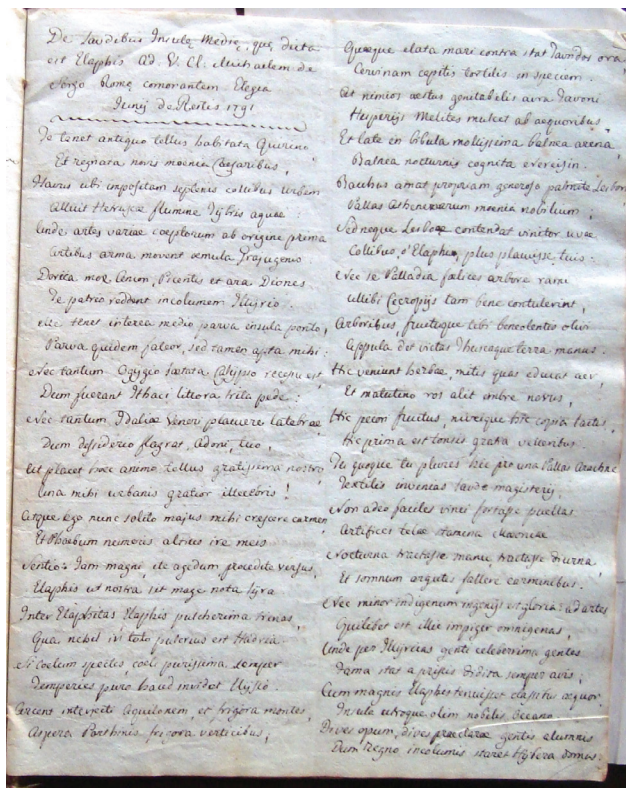 De Laudibus Insulę Medię, quę dicta
est Elaphis ad V. Cl. Michaelem de
Sorgo Romę comorantem Elegia
Junij de Restis 1791
Te tenet antiquo tellus habitata Quirino,
Et regnata novis moenia Cæsaribus,
Hauris ubi impositam septenis collibus urbem
Alluit Hetruscæ flumine Tybris aquae:
Unde artes variae coeptorum ab origine prima
Artibus arma movent æmula Grajugenis
Dorica mox Ancon, Picentis et ara Diones
Te patrio reddent incolumem Illyrio.
Me tenet interea medio parva insula ponto,
Parva quidem fateor, sed tamen apta mihi:
Nec tantum Ogygio lætata Calypso recessu est,
Dum fuerant Ithaci littora trita pede:
Nec tantum Idaliæ Veneri placuere latebrae
Dum desiderio flagrat, Adoni, tuo,
Ut placet hoc animo tellus gratissima nostro
Una mihi urbanis gratior illecebris!
Atque ego nunc solito majus mihi crescere carmen
Et Phæbum numeris altius ire meis
Sentio: Jam magni, ite agedum procedite versus,
Elaphis ut nostra sit mage nota lyra
Inter Elaphitas Elaphis pulcherima
Qua nihil in toto pulcrius est Hadria.
Si coelum species, coeli purissima semper
Temperies puro haud invidet Elysio.
Arcens intervecti Aquilonem, et frigora montes,
Aspera Parthinis frigora verticibus,
Quæque elata mari contra stat ora,
Cervinam capitis in speciem.
Et nimios æstus genitabilis aura Favoni
Hesperijs Melites mulcet ab aequoribus.
Et late in bibula mollissima balnea arena,
Balnea nocturnis cognita
Bacchus amat propriam generoso palmite Lesbon
Pallas Athenaeorum moenia nobilium;
Sed neque Lesboæ contendat vinitor uvae
Collibus, o Elaphe, plus placuisse tuis:
Nec se Palladia fælices arbore rami
Ullibi Cecropijs tam bene contulerint,
Arboribus, fructuque tibi beneolentis olivi
Appula det victas Thuscaque terra manus.
Hic veniunt herbæ, mitis quas educat aer,
Et matutino ros alit imbre novus,
Hic pecori fructus, niveique hic copia lactis,
Hic prima est tonsis grata velleribus.
Tu quoque tu plures hic pro una Pallas Arachne
Textilis invenias laude magisterij,
Non adeo faciles vinci jurasse puellas
Artifices telae stamina
Nocturna tractasse manu, tractasse diurna,
Et somnum argutis fallere carminibus.
Nec minor indigenum ingenijs est gloria: ad artes
Quilibet est illic impiger omnigenas,
Unde per Illyricas genti celeberrima gentes
Fama stat a priscis didita semper avis;
Cum magnis Elaphis tenuisset classibus aequor
Insula utroque olim nobilis Oceano
Dives opum, dives præclaræ gentis alumnis
Dum regno incolumis staret Hybera domus: